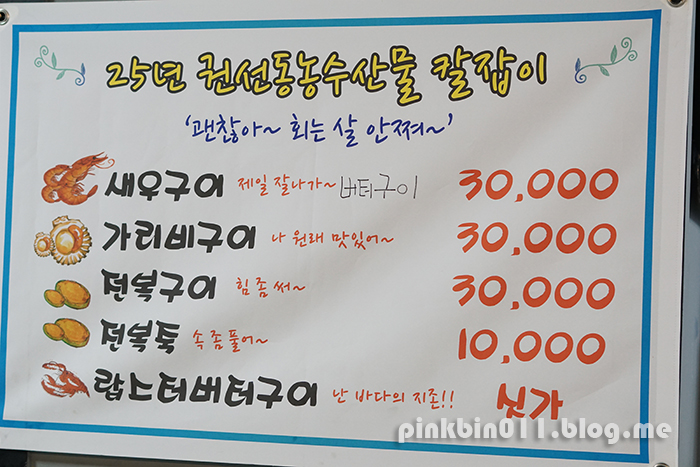 25년 권선동농수산물 칼잡이
'괜찮아~ 회는 살 안쪄~'
새우구이 제일 잘나가~ 버터구이 30,000
가리비구이 나 원래 맛있어~ 30,000
전복구이 힘 좀 써~ 30,000
전복톡 속 좀 풀어~ 10,000
랍스터버터구이 난 바다의 지존!! 싯가
pinkbin011.blog.me